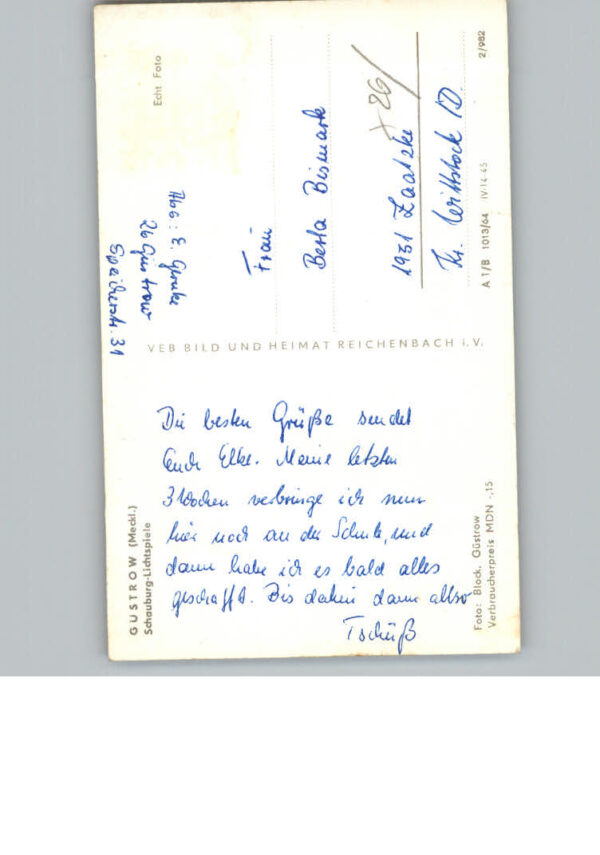 GÜSTROW (Meckl.)
Schauburg-Lichtspiele
Die besten Grüße sendet
Euch Elke. Meine letzten
3 Wochen verbringe ich nun
hier noch an der Schule, und
dann habe ich es bald alles
geschafft. Bis dahin dann allso
Tschüß
Foto: Block, Güstrow
Verbraucherpreis MDN -,15
VEB BILD UND HEIMAT REICHENBACH i. V.
Abs: E.
26 Güstrow
Speicherstr. 31
Echt Foto
Frau
Berta Bismark
1931 Zaatzke
Kr. Wittstock /D.
A 1/B 1013/64 IV-14-45
2/982